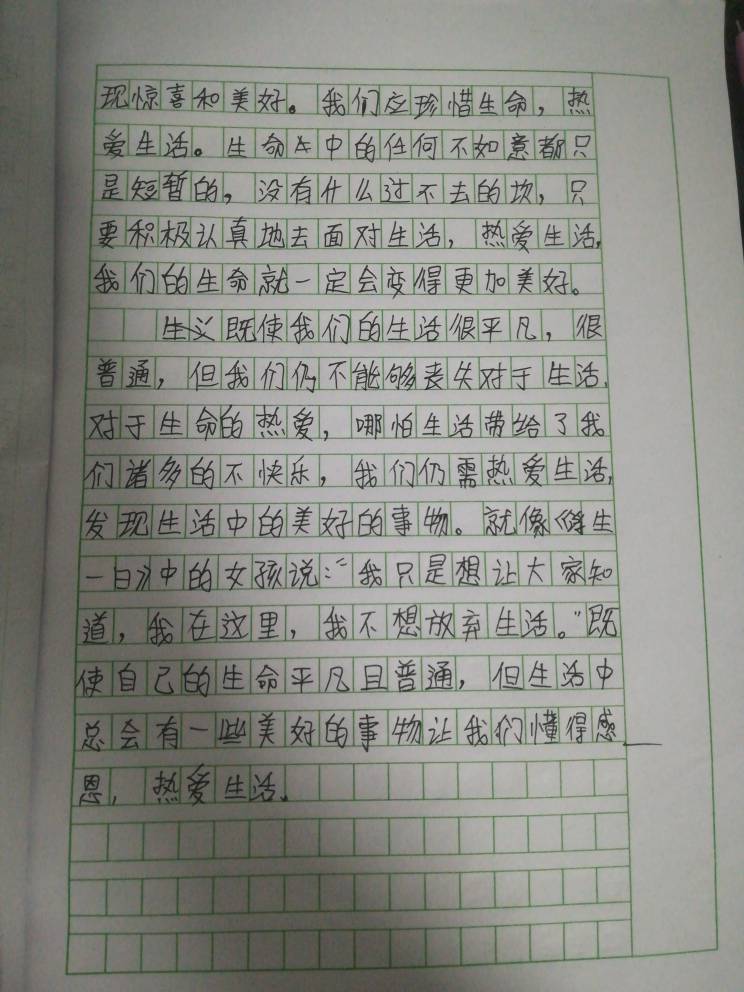 现惊喜和美好。我们应珍惜生命，热
爱生活。生命中的任何不如意都只
是短暂的，没有什么过不去的坎，只
要积极认真地去面对生活，热爱生活，
我们的生命就一定会变得更加美好。
既使我们的生活很平凡，很
普通，但我们仍不能够丧失对于生活，
对于生命的热爱，哪怕生活带给了我
们诸多的不快乐，我们仍需热爱生活，
发现生活中的美好的事物。就像《浮生
一日》中的女孩说：“我只是想让大家知
道，我在这里，我不想放弃生活。”既
使自己的生命平凡且普通，但生活中
总会有一些美好的事物让我们懂得感
恩，热爱生活。